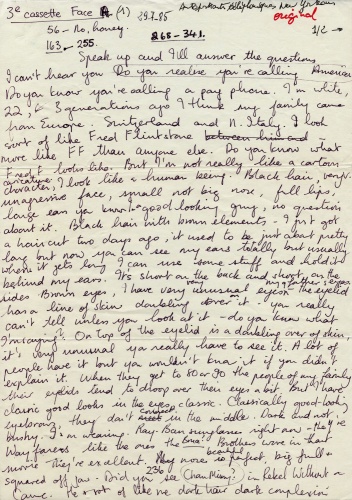 3e cassette Face A (1) 29.7.95
original
56 - No, honey. 1/2 →
163 - 255. 268-341.
Speak up and I'll answer the questions
I can't hear you Do you realise you're calling American
Do you know you're calling a pay phone. I'm white,
22, 3 generations ago I think my family came
from Europe. Switzerland and N. Italy. I look
sort of like Fred Flintstone
more like FF than anyone else. Do you know what
Fred looks like. But I'm not really like a cartoon
character, I look like a human being. Black hair, very
unagressive face, small not big nose, full lips,
large ears ya know - good looking guy, no question
about it. Black hair with brown elements - I just got
a haircut two days ago, it used to be just about pretty
long but now ya can see my ears totally but usually
when it gets long I can use some stuff and hold it
behind my ears. It's short on the back and short on the
sides Brown eyes. I have very unusual eyes on the eyelid
has a line of skin doubling over it - you really
can't tell unless you look at it - do ya know what
I'm saying? On top of the eyelid is a doubling over of skin,
it's very unusual you really have to see it. A lot of
people have it but you wouldn't know it if you didn't
explain it. When they get to 80 or 90 the people of my family
their eyelids tend to droop over their eyes a bit. But I have
classic good looks in the eyes classic. Classically good looking
eyebrows they don't connect in the middle. Dark and not
bushy. I'm wearing Ray-Ban sunglasses right now - they're
Wayfarers like the ones the Brothers wore in that
movie - They're excellent. My nose is perfect, big full &
squared off jaw. Did you see in Rebel Without a
236
Cause. He's sort of like me dark hair dark complexion